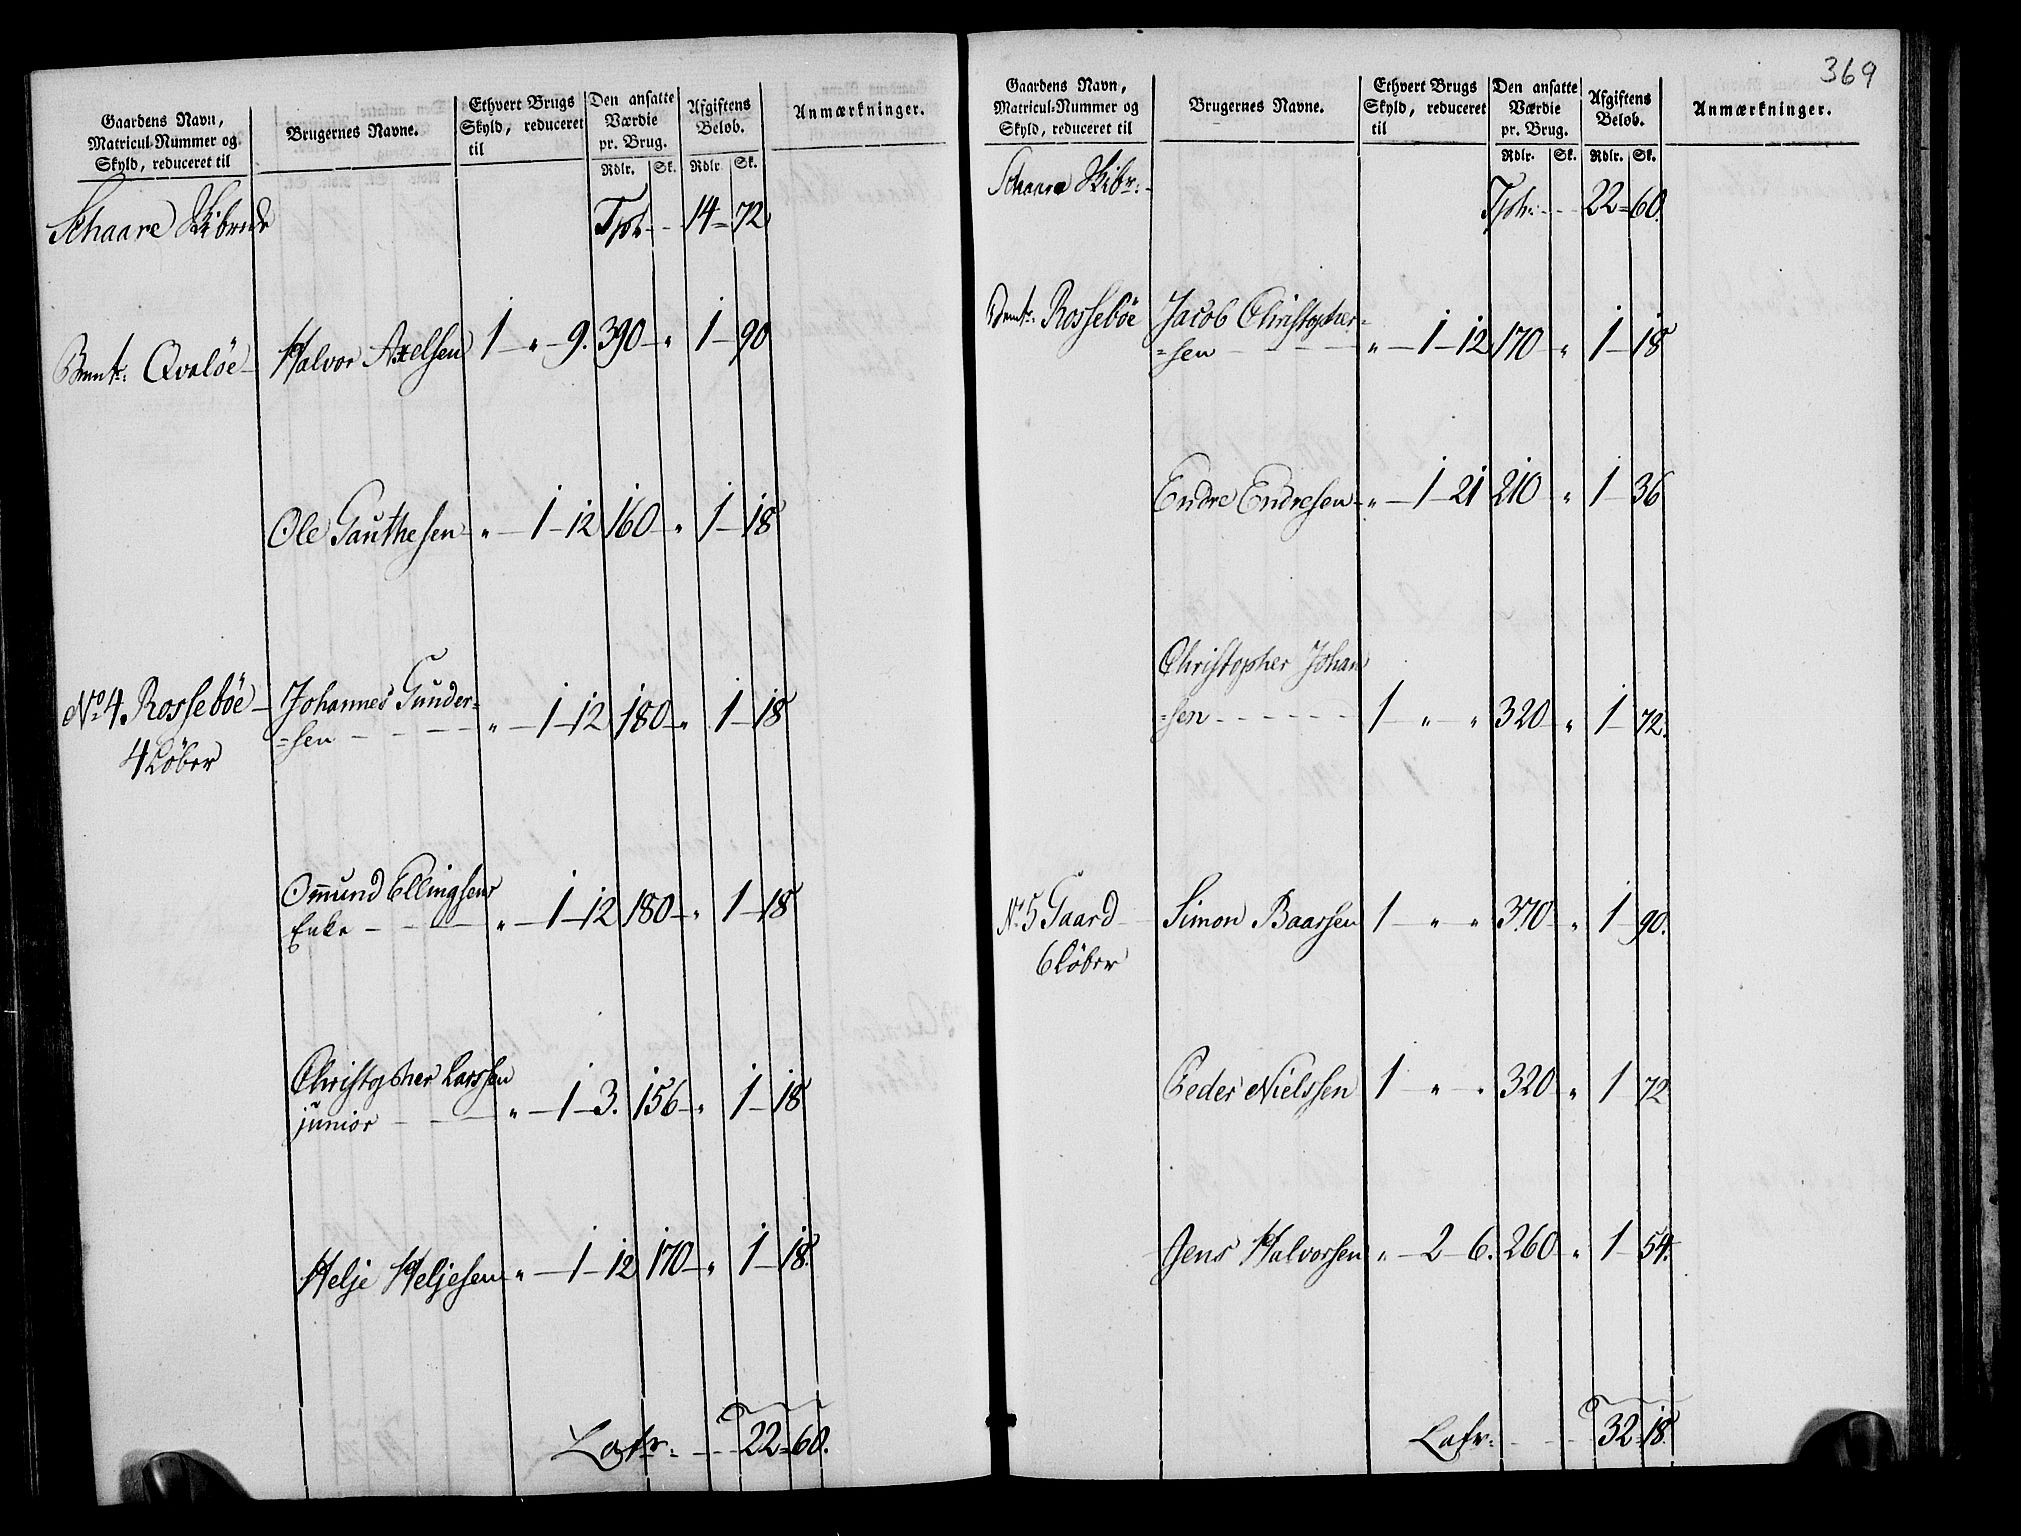 Gaardens Navn,
Matricul-Nummer og
Skyld, reduceret til
Brugernes Navne.
Ethvert Brugs
Skyld, reduceret
til
Den ansatte
Værdie
pr. Brug.
Rdlr. Sk.
Afgiftens
Beløb.
Rdlr. Sk.
Anmærkninger.
Schaare Skibrede Tpt. 14 = 72
Qvaløe Halvor Axelsen 1 — „ — 9. 390 — „ 1 — 90
Ole Gauthesen „ — 1 — 12 160 — „ 1 — 18
No 4. Rossebøe Johannes Gunder=
=sen „ — 1 — 12 180 — „ 1 — 18
4 Løber
Omund Ellingsens
Enke „ — 1 — 12 180 — „ 1 — 18
Christopher Larssen
junior „ — 1 — 3. 156 — „ 1 — 18
Helje Heljesen „ — 1 — 12 170 — „ 1 — 18.
Latr. 22 = 60.
369
Gaardens Navn,
Matricul-Nummer og
Skyld, reduceret til
Brugernes Navne.
Ethvert Brugs
Skyld, reduceret
til
Den ansatte
Værdie
pr. Brug.
Rdlr. Sk.
Afgiftens
Beløb.
Rdlr. Sk.
Anmærkninger.
Schaare Skibr. Tpt. 22 = 60.
Rossebøe Jacob Christopher=
=sen „ — 1 — 12 170 „ 1 — 18
Endre Endresen „ — 1 — 21 210 „ 1 — 36
Christopher Johan
=sen 1 „ „ 320 „ 1 — 72.
No 5 Gaard Simon Baarsen 1 „ „ 370 „ 1 — 90.
6 Løber
Peder Nielssen 1 „ „ 320 „ 1 72
Jens Halvorsen „ — 2 — 6. 260 „ 1 — 54.
Latr. 32 = 18.